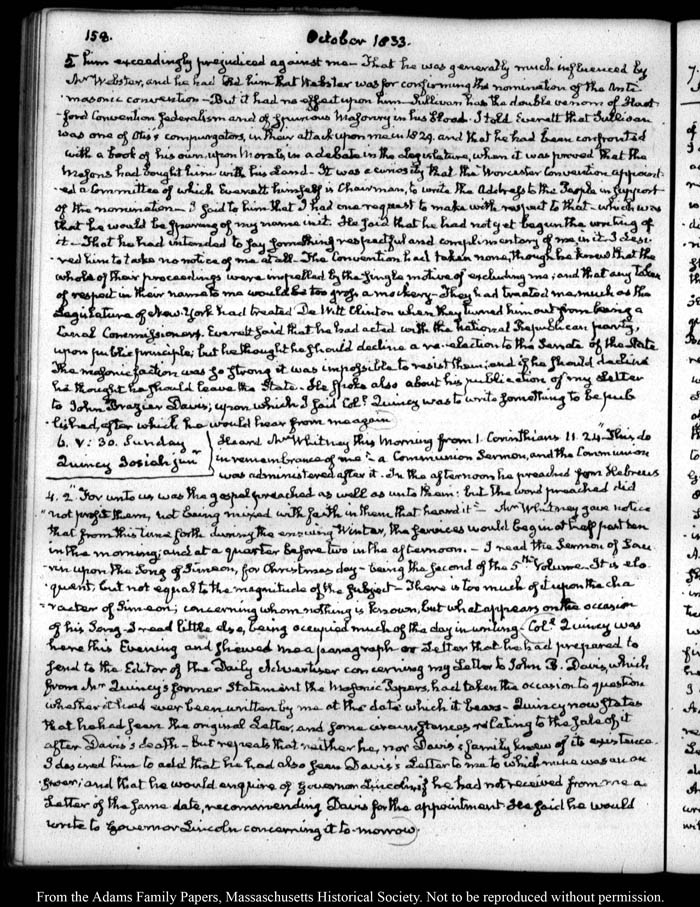 158.
October 1833.
5 him exceedingly prejudiced against me — That he was generally much influenced by
Mr Webster, and he had told him that Webster was for confirming the nomination of the Anti-
masonic convention — But it had no effect upon him — Sullivan has the double venom of Hart-
ford Convention federalism and of spurious Masonry in his blood. I told Everett that Sullivan
was one of Otis's compurgators, in their attack upon me in 1829. and that he had been confronted
with a book of his own, upon Morals, in a debate in the Legislature, when it was proved that the
Masons had bought him with his Land — It was a curiosity that the Worcester Convention appoint
ed a Committee of which Everett himself is Chairman, to write the Address to the People in support
of the nomination — I said to him that I had one request to make with respect to that — which was
that he would be sparing of my name in it. He said that he had not yet begun the writing of
it — That he had intended to say something respectful and complimentary of me in it. I desi-
red him to take no notice of me at all — The Convention had taken none, though he knew that the
whole of their proceedings were impelled by the single motive of excluding me; and that any token
of respect in their name to me would be too gross a mockery — They had treated me much as the
Legislature of New York had treated De Witt Clinton when they turned him out from being a
Canal Commissioner. Everett said that he had acted with the National Republican party,
upon public principle; but he thought he should decline a re-election to the Senate of the State
The masonic faction was so strong it was impossible to resist them; and if he should decline
he thought he should leave the State. He spoke also about his publication of my Letter
to John Brazier Davis; upon which I said Col. Quincy was to write something to be pub
lished, after which he would hear from me again
6. V: 30. Sunday
Quincy Josiah junr
Heard Mr Whitney this Morning from 1. Corinthians 11. 24 "This do
in remembrance of me" — a Communion Sermon, and the Communion
was administered after it. In the afternoon he preached from Hebrews
4. 2 "For unto us was the gospel preached as well as unto them: but the word preached did
"not profit them, not being mixed with faith in them that heard it" — Mr Whitney gave notice
that from this time forth during the ensuing Winter, the services would begin at half past ten
in the morning; and at a quarter before two in the afternoon. — I read the Sermon of Sau-
rin upon the Song of Simeon, for Christmas day — being the second of the 5th Volume. It is elo
quent, but not equal to the magnitude of the subject — There is too much of it upon the cha
racter of Simeon; concerning whom nothing is known, but what appears on the occasion
of his Song. I read little else, being occupied much of the day in writing. Col. Quincy was
here this Evening and shewed me a paragraph or Letter that he had prepared to
send to the Editor of the Daily Advertiser concerning my Letter to John B. Davis, which
from Mr Quincy's former Statement the Masonic Papers, had taken the occasion to question
whether it had ever been written by me at the date which it bears — Quincy now states
that he had seen the original Letter, and some circumstances relating to the sale of it
after Davis's death — but repeats that neither he, nor Davis's family knew of its existence.
I desired him to add that he had also seen Davis's Letter to me to which mine was an an
swer; and that he would enquire of Governor Lincoln if he had not received from me a
Letter of the same date, recommending Davis for the appointment. He said he would
write to Governor Lincoln concerning it to-morrow.
From the Adams Family Papers, Massachusetts Historical Society. Not to be reproduced without permission.